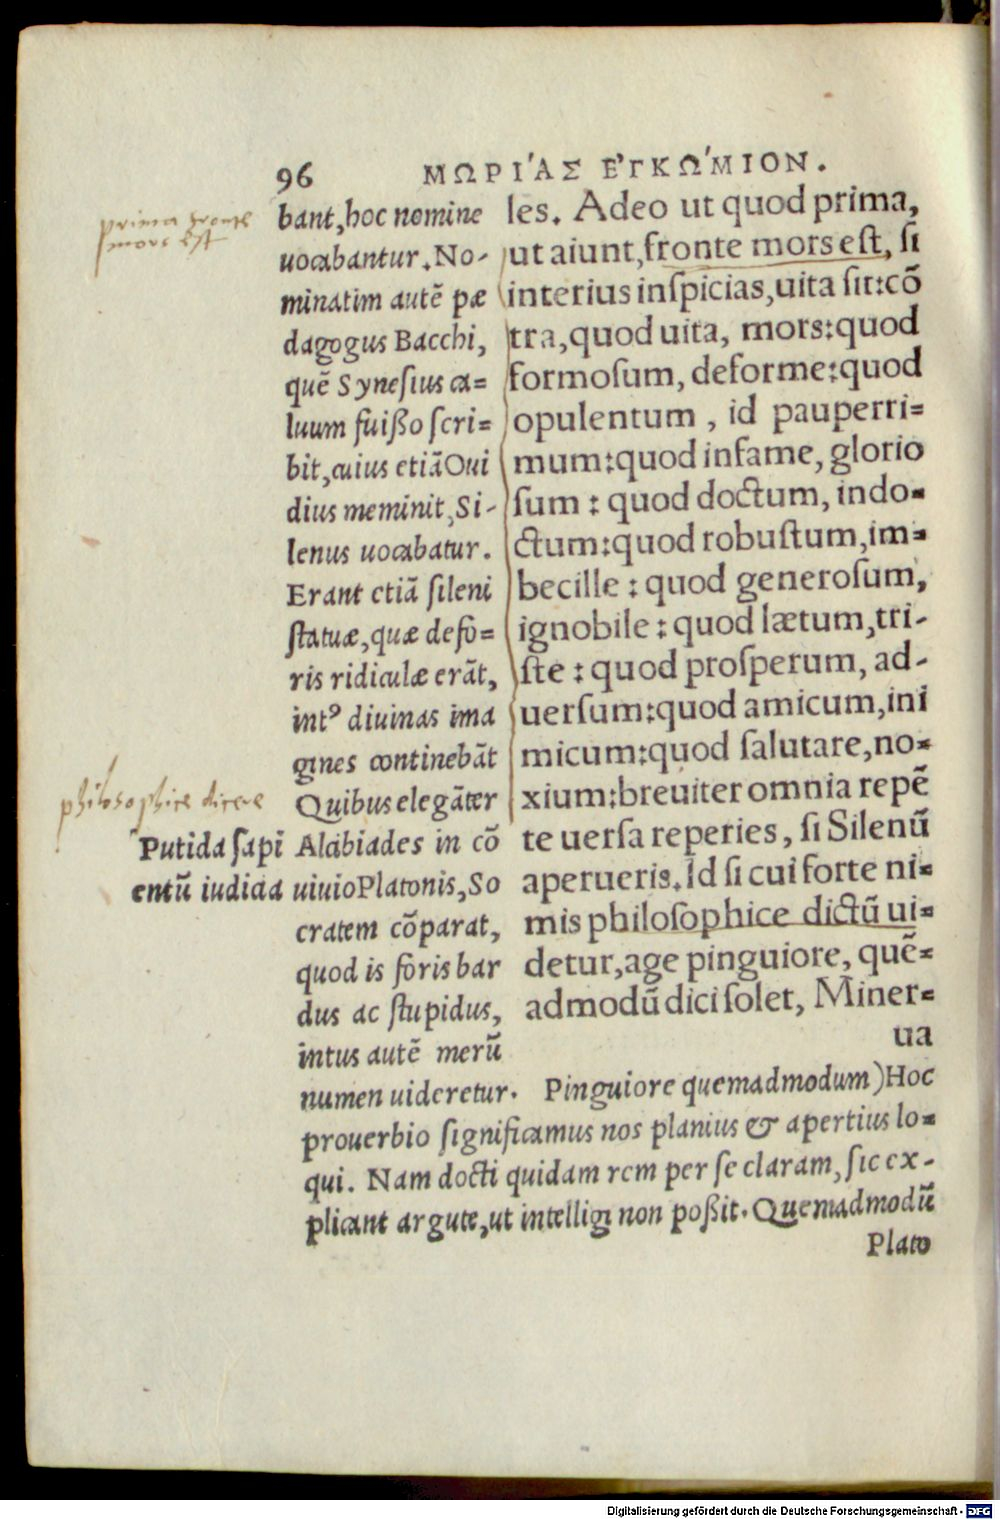 96 ΜΩΡΙ´ΑΣ Ε᾿ΓΚΩ´ΜΙΟΝ.
prima fronte
mors est
bant, hoc nomine
uocabantur. No-
minatim autẽ pæ
dagogus Bacchi,
quẽ Synesius ca=
luum fuißo scri=
bit, cuius etiã Oui
dius meminit, Si-
lenus uocabatur.
Erant etiã sileni
statuæ, quæ defo=
ris ridiculæ erãt,
intꝰ diuinas ima
gines continebãt
Quibus elegãter
Alcibiades in cõ
uiuio Platonis, So
cratem cõparat,
quod is foris bar
dus ac stupidus,
intus autẽ merũ
philosophice dicere
Putida sapĩ
entũ iudicia
les. Adeo ut quod prima,
ut aiunt, fronte mors est, si
interius inspicias, uita sit: cõ
tra, quod uita, mors: quod
formosum, deforme: quod
opulentum, id pauperri=
mum: quod infame, glorio
sum: quod doctum, indo=
ctum: quod robustum, im=
becille: quod generosum,
ignobile: quod lætum, tri-
ste: quod prosperum, ad-
uersum: quod amicum, ini
micum: quod salutare, no=
xium: breuiter omnia repẽ
te uersa reperies, si Silenũ
aperueris. Id si cui forte ni=
mis philosophice dictũ ui=
detur, age pinguiore, quẽ=
admodũ dici solet, Miner=
ua
numen uideretur. Pinguiore quemadmodum) Hoc
prouerbio significamus nos planius & apertius lo=
qui. Nam docti quidam rem per se claram, sic ex-
plicant argute, ut intelligi non poßit. Quemadmodũ
Plato
Digitalisierung gefördert durch die Deutsche Forschungsgemeinschaft - DFG